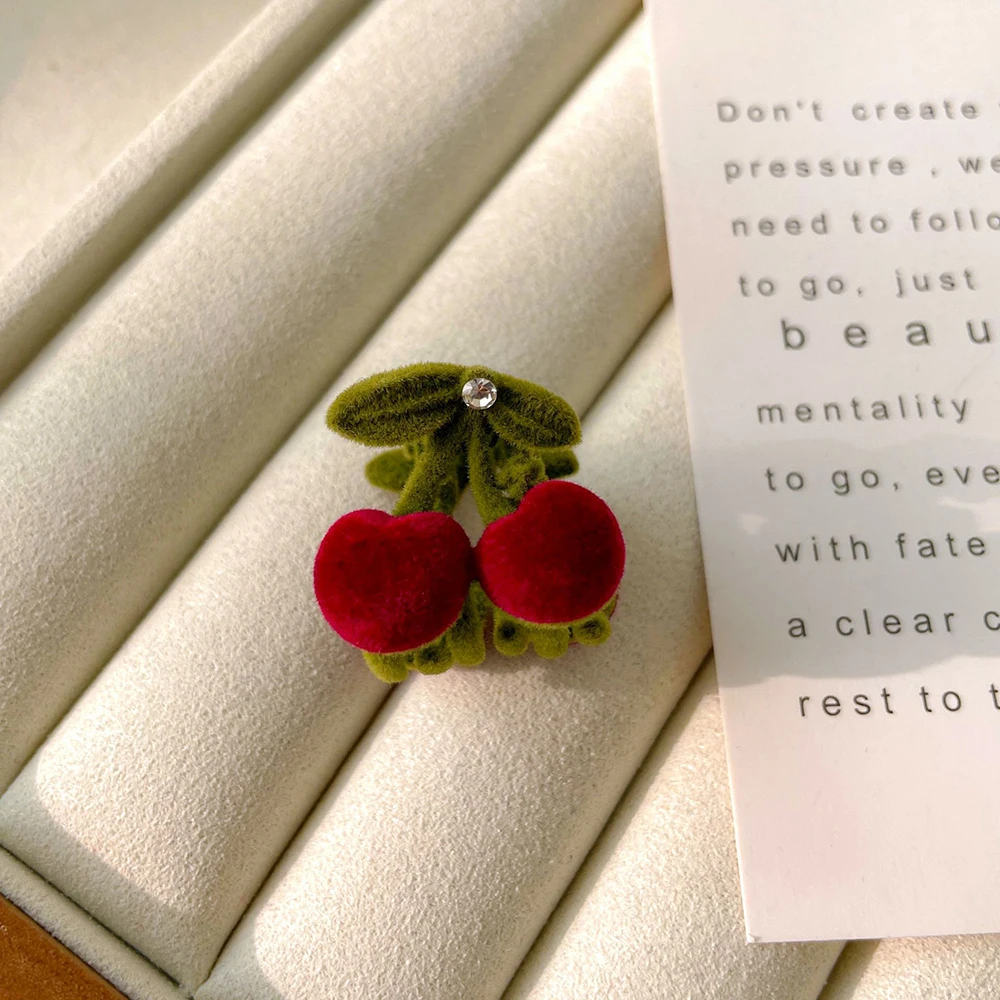 Don't create
pressure , we
need to follo
to go, just
beau
mentality
to go, eve
with fate
a clear c
rest to t